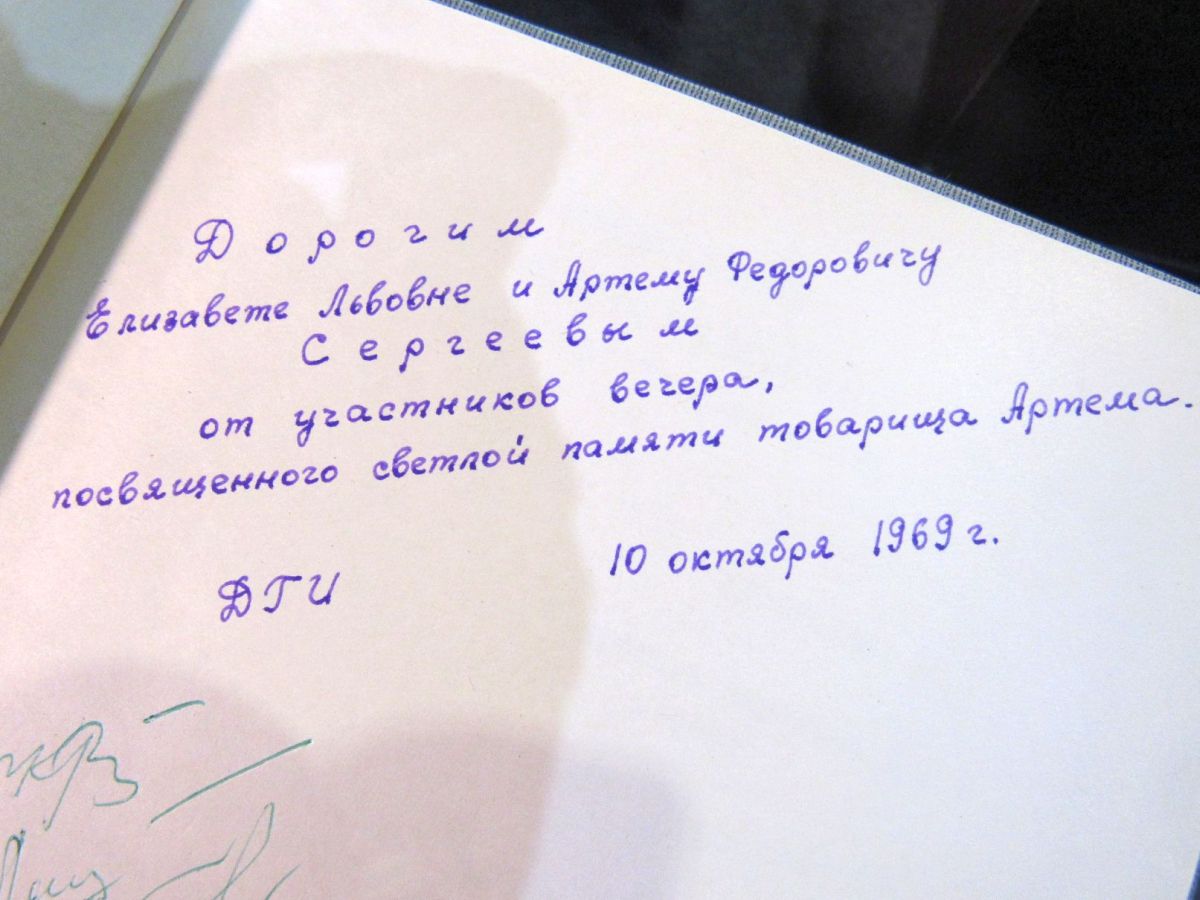 Дорогим
Елизавете Львовне и Артему Федоровичу
Сергеевым
от участников вечера,
посвященного светлой памяти товарища Артема.
10 октября 1969 г.
ДГИ